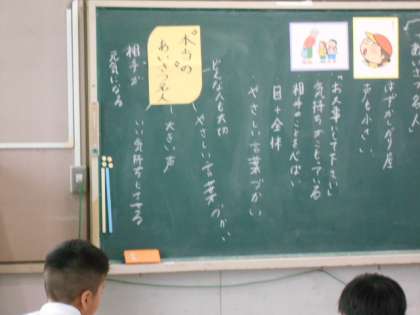 あいさつ名人
はずかしがり屋
声も小さい
「お大事にして下さい」
気持ちがこもっている
相手のことをくばい
目+全体
やさしい言葉づかい
どんな人も大切
やさしい言葉づかい
大きい声
いい気持ちにさせる
本当の
あいさつ名人
相手が
元気になる